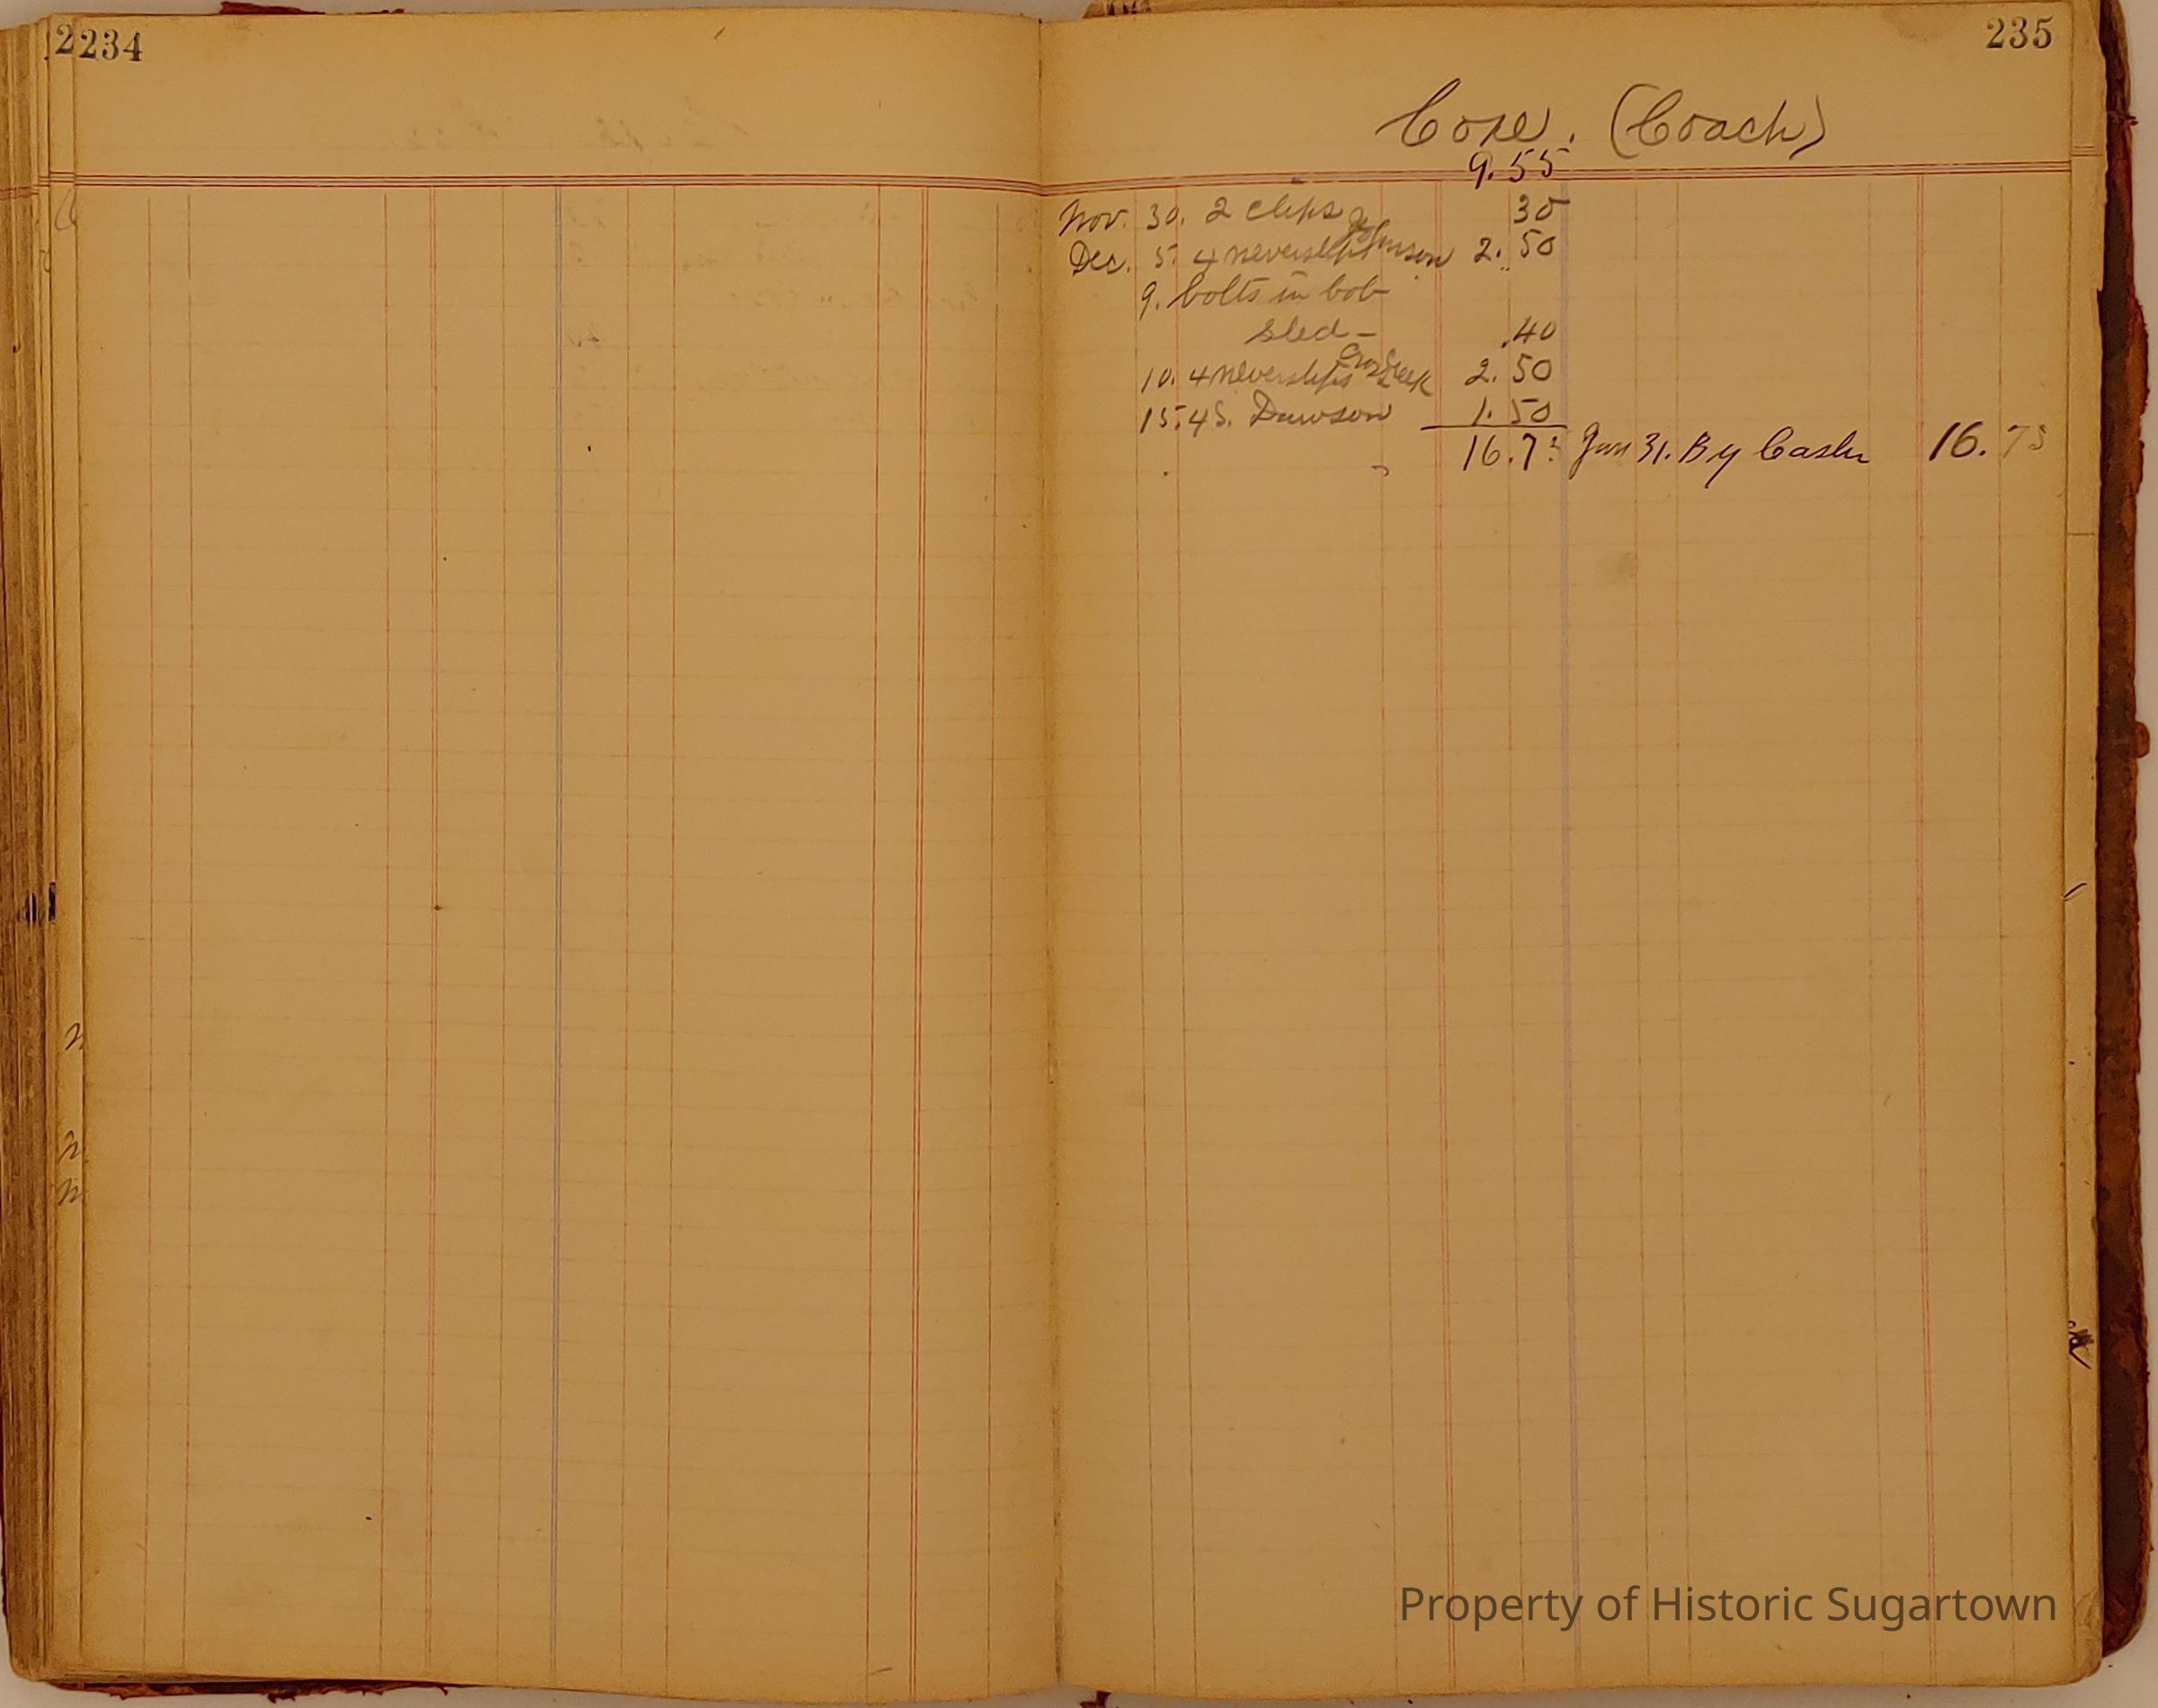 234
235
Cope. (Coach)
9.55
Nov. 30. 2 clips 30
Johnson
Dec. 5. 4 neverslips 2.50
9. bolts in bob
sled - .40
10. 4 neverslips 2.50
15. 4 S. Dawson 1.50
16.75 Jan 31. By Cash 16.75
Property of Historic Sugartown